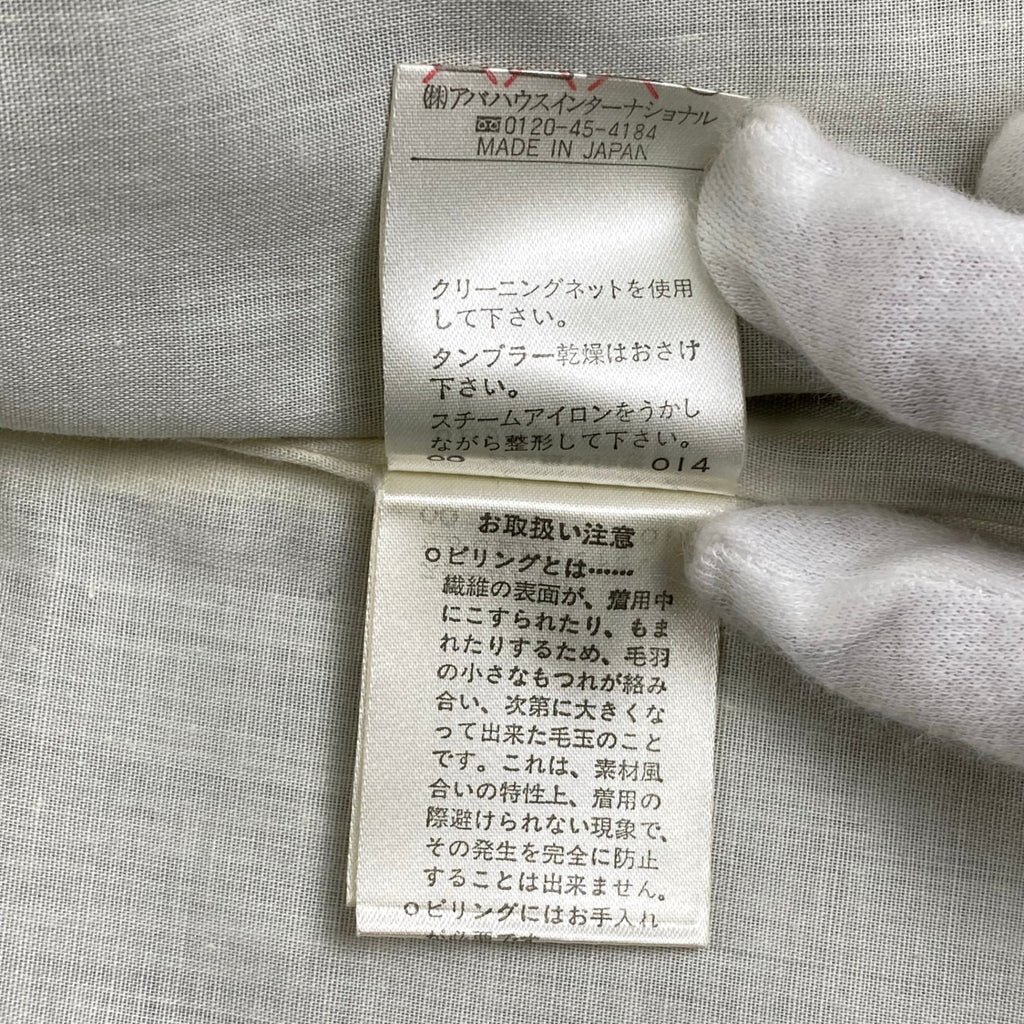 ㈱アバハウスインターナショナル
0120-45-4184
MADE IN JAPAN
クリーニングネットを使用
して下さい。
タンブラー乾燥はおさけ
下さい。
スチームアイロンをうかし
ながら整形して下さい。
00 014
お取扱い注意
○ピリングとは……
繊維の表面が、着用中
にこすられたり、もま
れたりするため、毛羽
の小さなもつれが絡み
合い、次第に大きくな
って出来た毛玉のこと
です。これは、素材風
合いの特性上、着用の
際避けられない現象で、
その発生を完全に防止
することは出来ません。
○ピリングにはお手入れ
が必要です